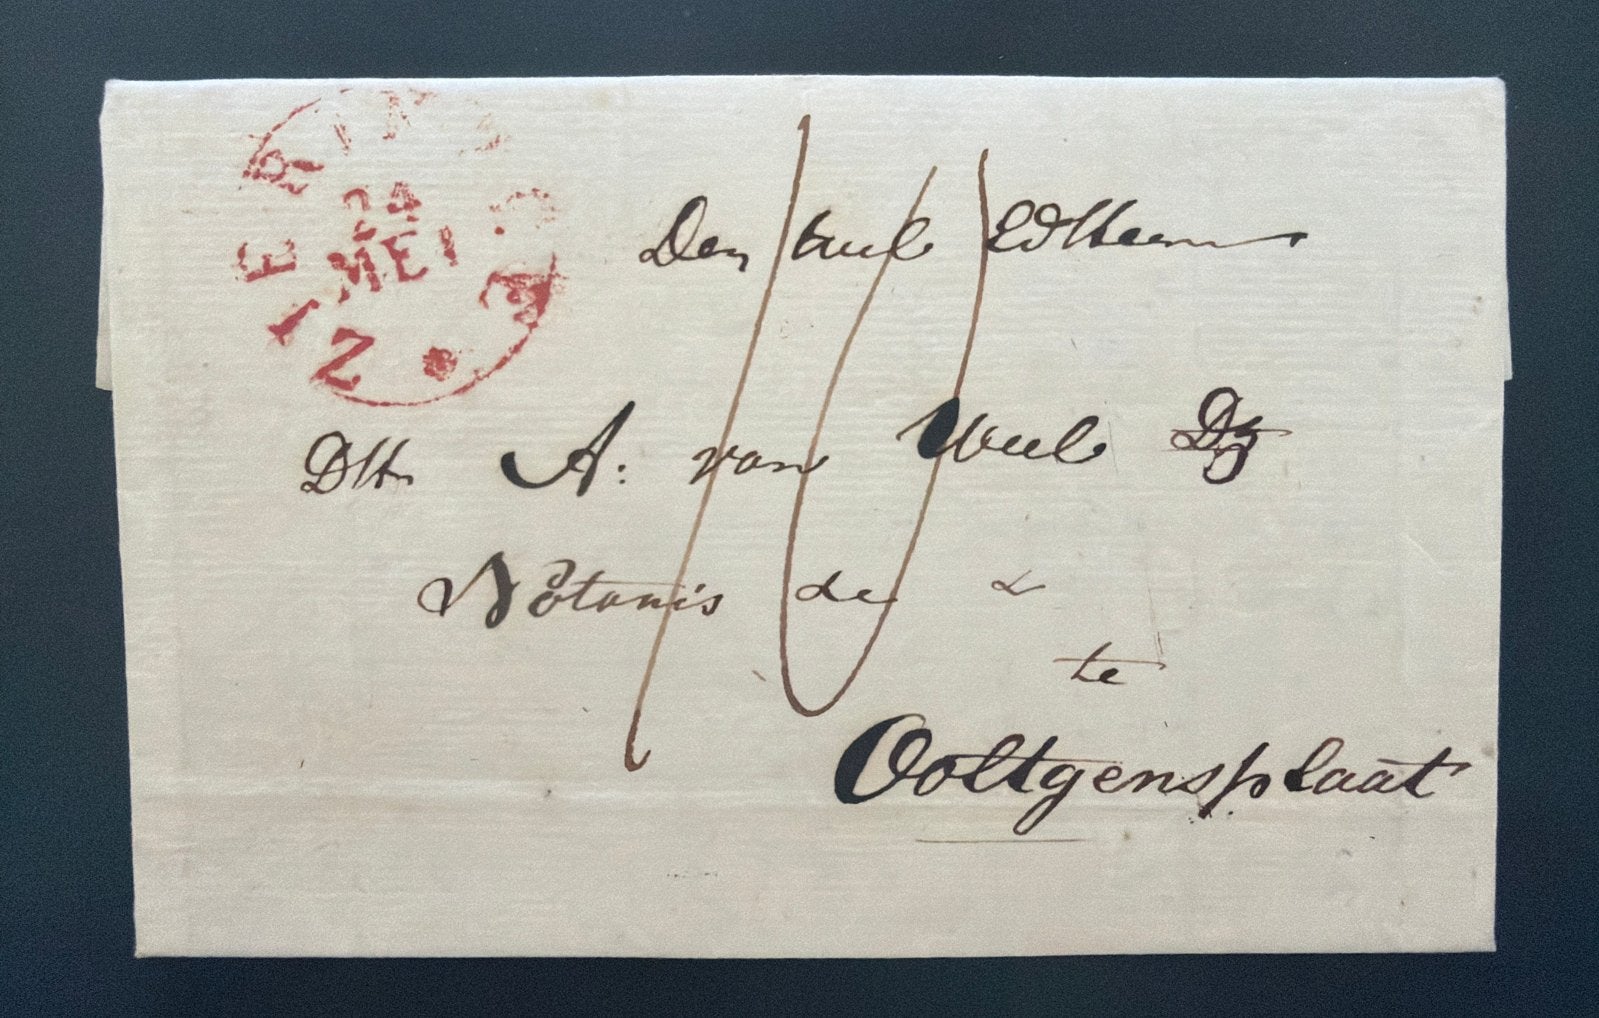 ZIERIKZEE
24
MEI
10
Den Weled Heer
DHr A: van Weel Dz
Notaris &c &
te
Ooltgensplaat